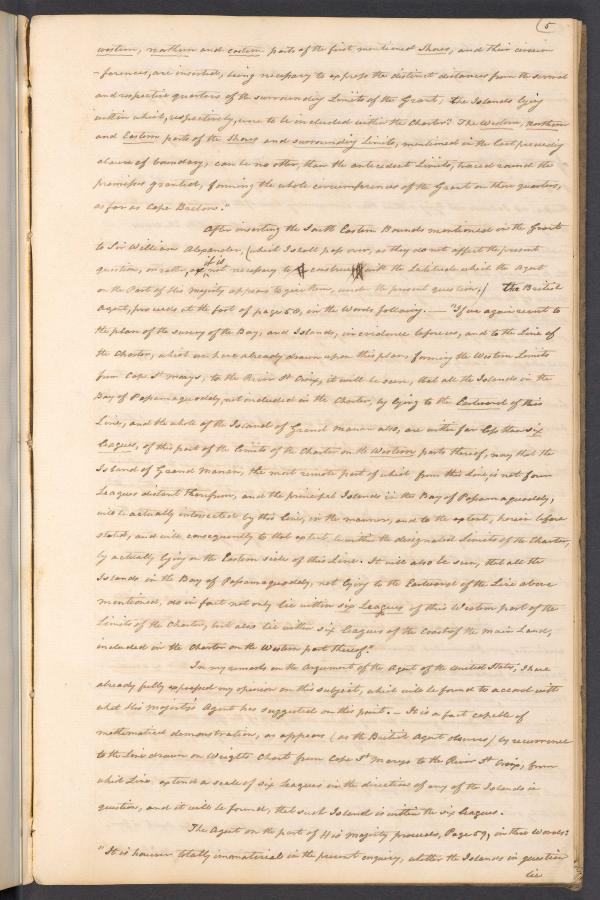 5
western, northern and eastern parts of the first mentioned Shores, and their circum
-ferences, are inserted, being necessary to express the distinct distances from the several
and respective quarters of the surrounding Limits of the Grant, the Islands lying
within which, respectively, were to be included within the Charter? The Western, Northern
and Eastern parts of the Shores and surrounding Limits, mentioned in the last preceding
clause of boundary, can be no other, than the antecedent Limits, traced round the
premises granted, forming the whole circumference of the Grant on those quarters,
as far as Cape Breton."
After inserting the South Eastern Bounds mentioned in the Grant
to Sir William Alexander, (which I shall pass over, as they do not affect the present
question, or rather, as it is not necessary to construe with the Latitude which the Agent
on the Part of His Majesty appears to give them, under the present question,) the British
Agent, proceeds at the foot of page 58, in the Words following. — "If we again recur to
the plan of the survey of the Bay, and Islands, in evidence before us, and to the Line of
the Charter, which we have already drawn upon this plan, forming the Western Limits
from Cape St. Marys, to the River St Croix, it will be seen, that all the Islands in the
Bay of Passamaquoddy, not included in the Charter, by lying to the Eastward of this
Line, and the whole of the Island of Grand Manan also, are within far less than six
leagues, of this part of the Limits of the Charter on the Western parts thereof, nay that the
Island of Grand Manan, the most remote part of which from this Line, is not four
Leagues distant therefrom, and the principal Islands in the Bay of Passamaquoddy,
will be actually intersected by this Line, in the manner, and to the extent, herein before
stated, and will consequently to that extent be within the designated Limits of the Charter,
by actually lying on the Eastern side of this Line. It will also be seen, that all the
Islands in the Bay of Passamaquoddy, not lying to the Eastward of the Line above
mentioned, do in fact not only lie within six Leagues of this Western part of the
Limits of the Charter, but also lie within six leagues of the Coast of the Main Land,
included in the Charter on the Western part thereof."
In my remarks on the Argument of the Agent of the United States, I have
already fully expressed my opinion on this subject, which will be found to accord with
what His Majesty's Agent has suggested on this point. — It is a fact capable of
mathematical demonstration, as appears (as the British Agent observes) by recurrence
to the Line drawn on Wright's Chart from Cape St Marys to the River St Croix, from
which Line extend a scale of six Leagues in the direction of any of the Islands in
question, and it will be found, that such Island is within the six leagues.
The Agent on the part of His Majesty proceeds, Page 59, in these Words:
"It is however totally immaterial in the present enquiry, whether the Islands in question
lie